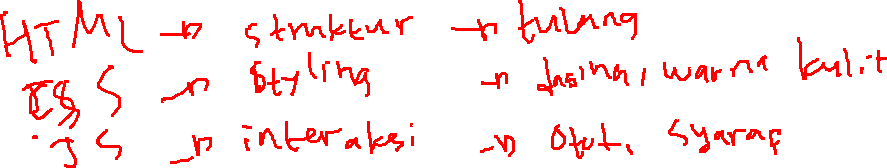 HTML → struktur → tulang
CSS → Styling → warna kulit
JS → interaksi → Otot, syaraf